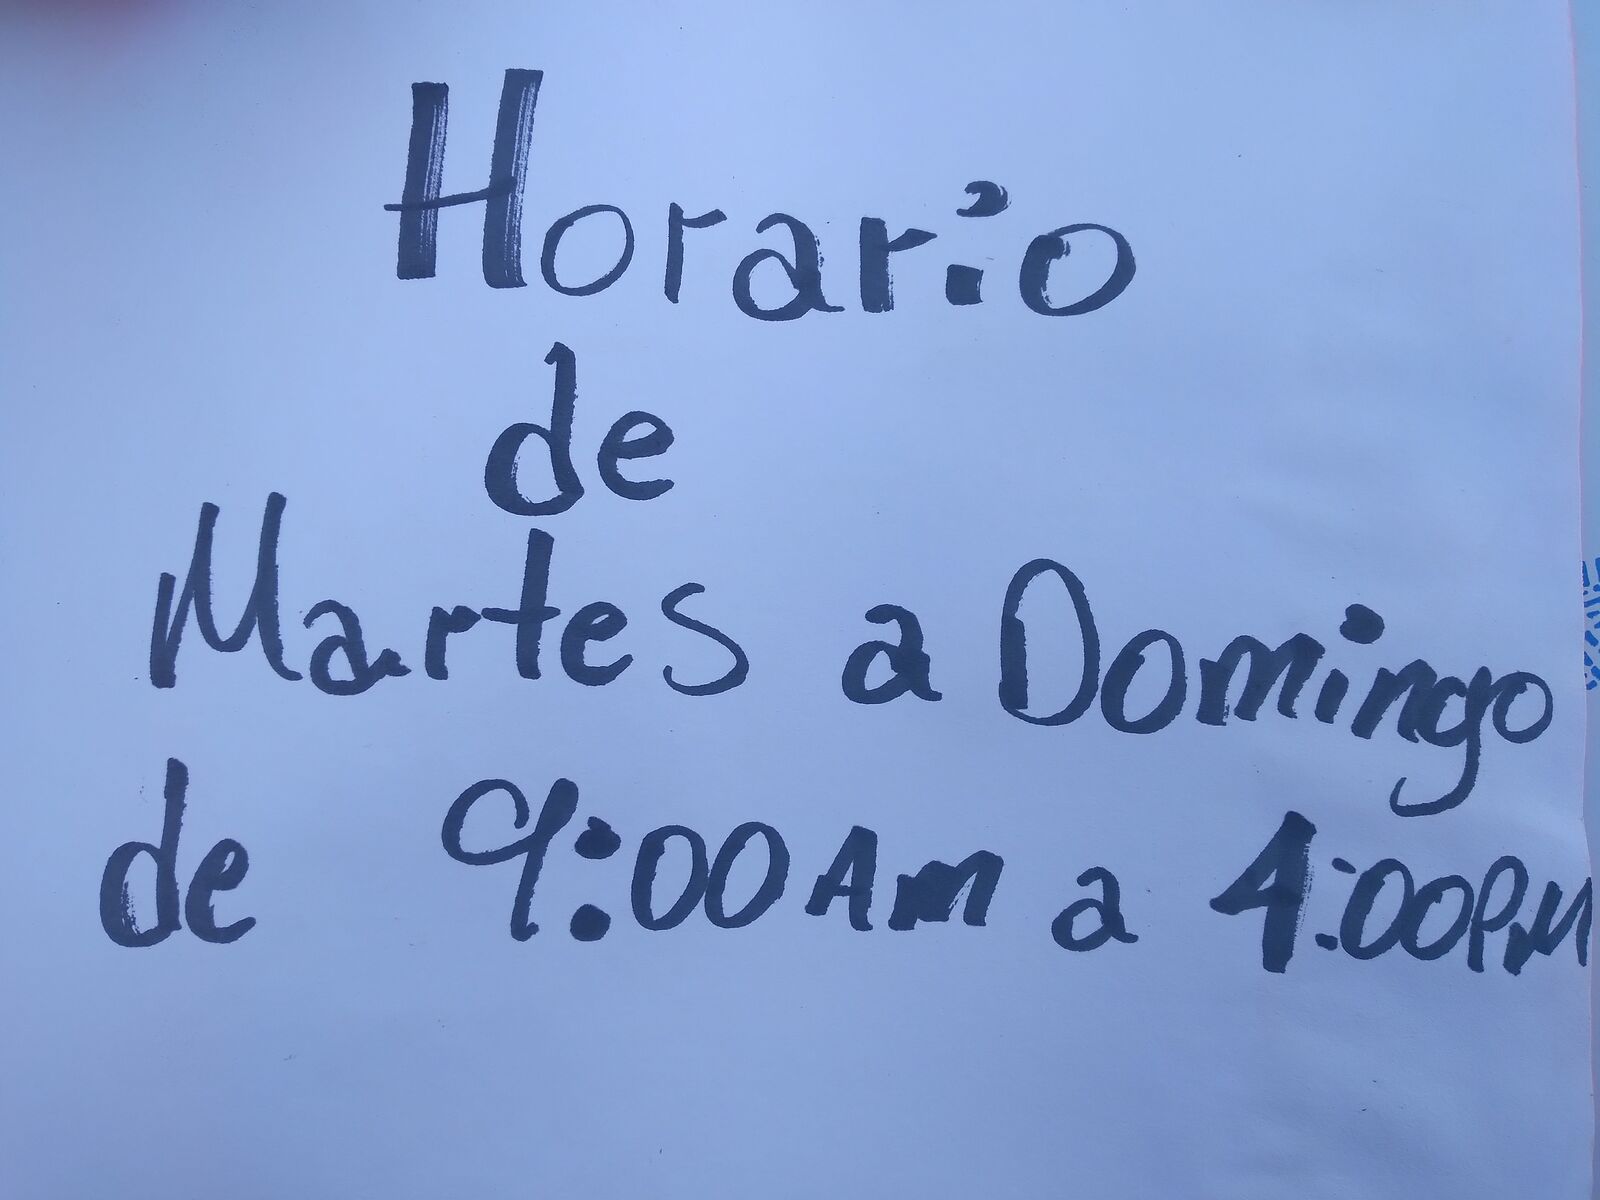 Horario
de
Martes a Domingo
de 9:00 AM a 4:00 PM